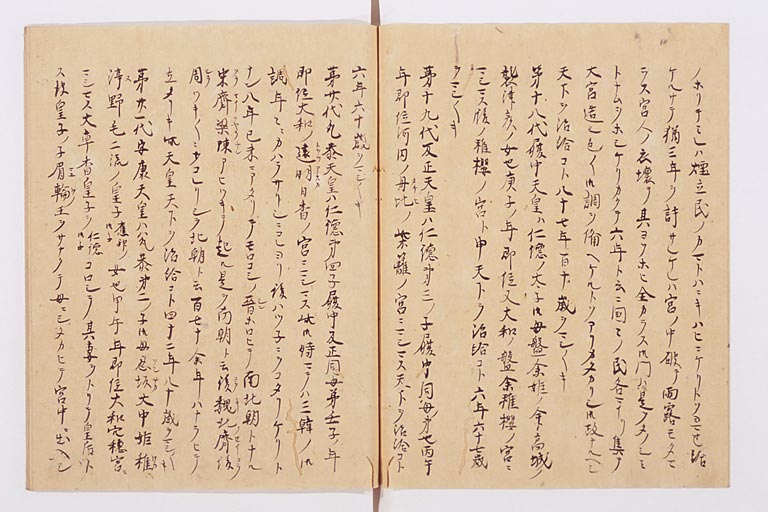 ノホリテミレハ煙立民ノカマトハニキハヒニケリトヨミ給
ケルナリ猶三年ヲ許サレケレハ宮ノ中破テ雨露モタマ
ラス宮人ノ衣壊テ其ヨソホヒ全カラス御門ハ是ヲタノシミ
トナムヲホシケルカクテ六年ト云ニ国々ノ民各マイリ集テ
大宮造シ色々ノ御調ヲ備ヘケルトソアリカタカリシ御政ナルヘシ
天下ヲ治給コト八十七年百十歳ヲマシ〳〵キ
第十八代履中天皇ハ仁徳ノ太子御母盤余姫ノ命葛城ノ
襲津彦ノ女也庚子ノ年即位又大和ノ盤余稚櫻ノ宮ニ
マシマス後ノ稚櫻ノ宮ト申天下ヲ治給コト六年六十七歳
ヲマシ〳〵キ
第十九代反正天皇ハ仁徳第三ノ子履中同母ノ弟也丙午
年即位河内ノ丹比ノ柴籬ノ宮ニマシマス天下ヲ治給コト
六年六十歳ヲマシ〳〵キ
第廿代允恭天皇ハ仁徳第四子履中反正同母弟壬子ノ年
即位大和ノ遠明日香ノ宮ニマシマス此御時マテハ三韓ノ御
調年々ニカハラサリシニコレヨリ後ハツネニヲコタリケリト
ナン八年己未ニアタリテモロコシノ晋ホロヒテ南北朝トナル
宋齊梁陳アヒツキテ起ル是ヲ南朝ト云後魏北齊後
周ツキ〳〵ニオコレリシヲ北朝ト云百七十余年ハナラヒテ
立タリキ此天皇天下ヲ治給コト四十二年八十歳ヲマシ〳〵キ
第廿一代安康天皇ハ允恭第二ノ子御母忍坂大中姫稚
渟野毛二派ノ皇子應神御子女也甲午年即位大和穴穂宮ニ
マシマス大草香皇子ヲ仁徳御子コロシテ其妻ヲトリテ皇后ト
ス彼皇子ノ子眉輪王ヲサナクテ母ニシタカヒテ宮中ニ出入シ